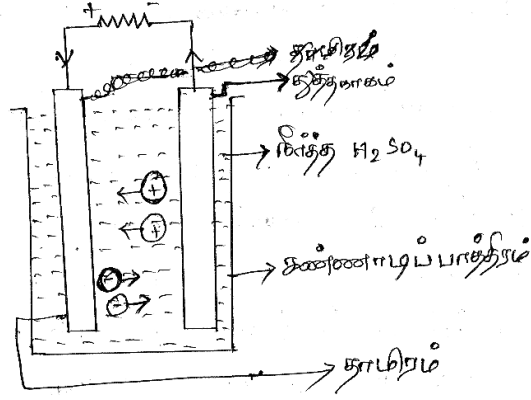 + -
துத்தநாகம்
நீர்த்த H2SO4
+
+
கண்ணாடிப்பாத்திரம்
-
-
தாமிரம்